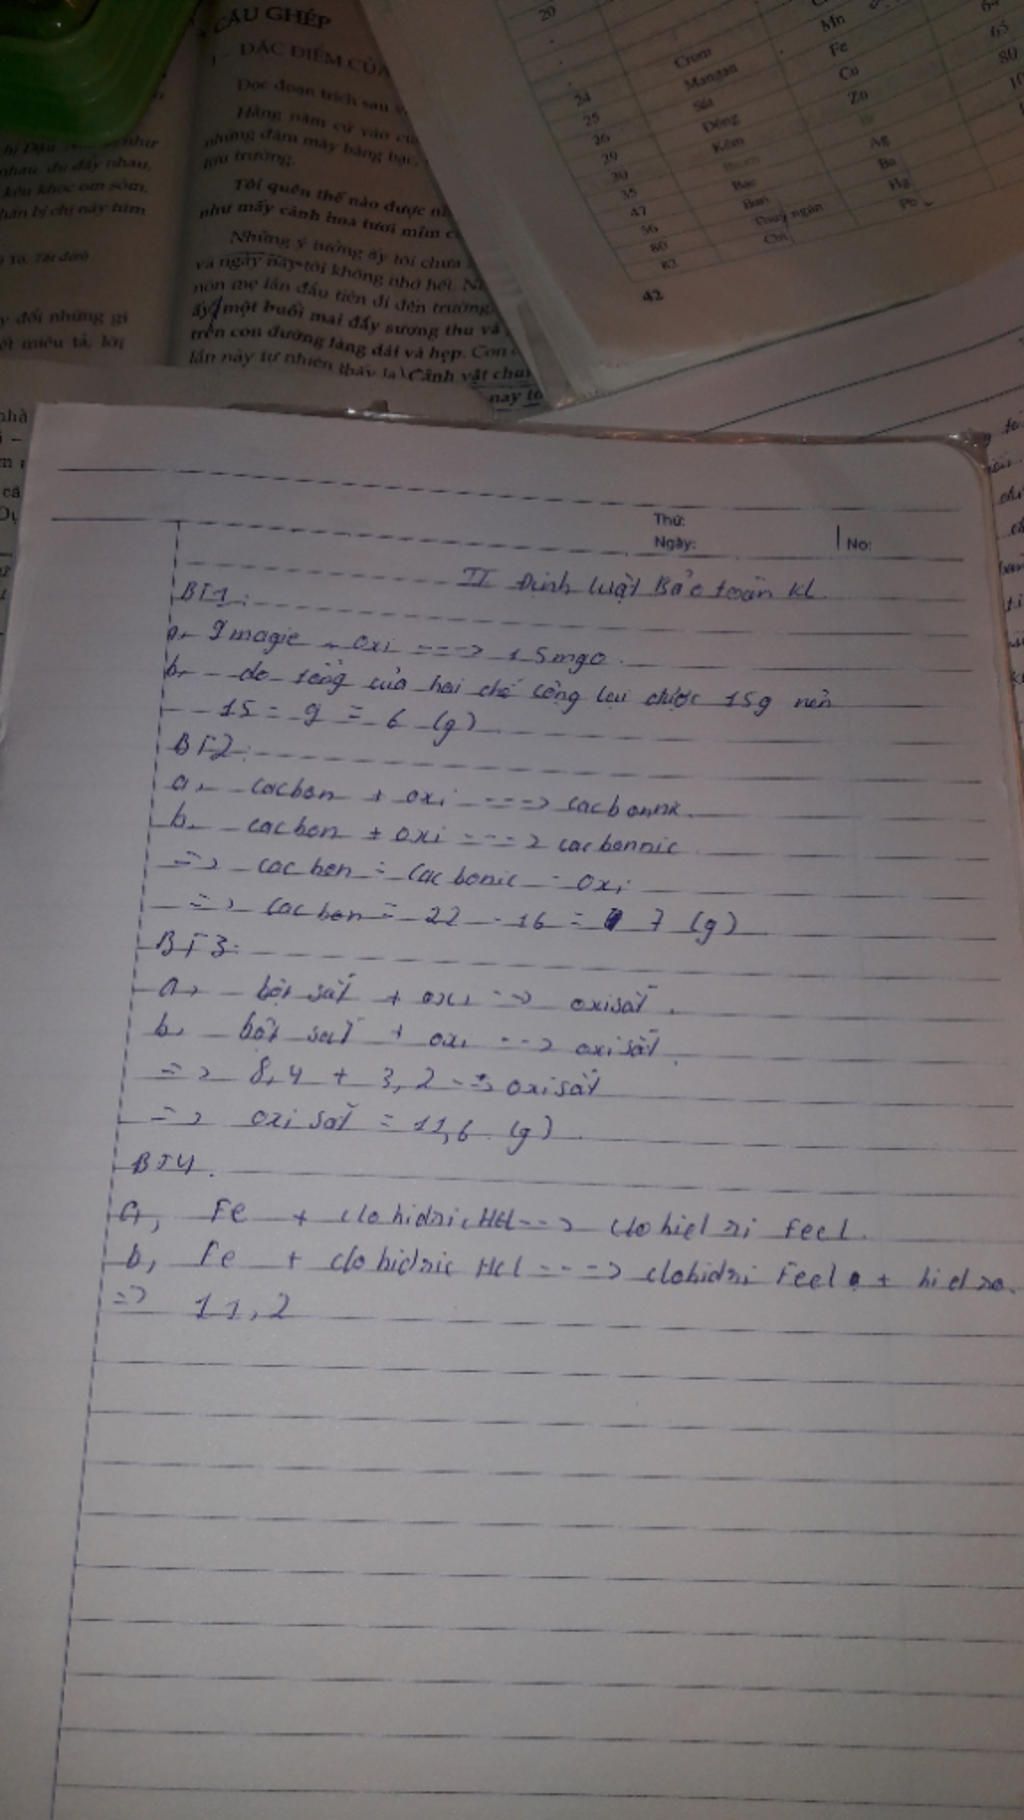 CÂU GHÉP
ĐẶC ĐIỂM CỦA
Đọc đoạn trích sau
Hằng năm cứ vào
những đám mây bàng bạc,
tựu trường.
Tôi quên thế nào được
như mấy cánh hoa tươi mỉm
Những ý tưởng ấy tôi chưa
và ngày nay tôi không nhớ hết.
nón mẹ lần đầu tiên đi đến trường,
ấy, một buổi mai đầy sương thu và
trên con đường làng dài và hẹp. Con
lần này tự nhiên thấy lạ. Cảnh vật
nay
chị Dậu như
nhau, đu đẩy nhau,
kêu khóc om sòm.
bị chị này túm
Tố, Tắt đèn)
đổi những gì
miêu tả, lời
20
Mn
24 Crom Fe
25 Mangan Cu 65
26 Sắt Zn 80
29 Đồng
30 Kẽm Ag
35 Ba
47 Bạc Hg
56 Bari Pb
80 Thuỷ ngân
82 Chì
42
Thứ:
Ngày: No:
II Định luật Bảo toàn KL
BT1:
a, 9 magie + oxi ---> 15mgo.
b, do tổng của hai chế cộng lại được 15g nên
15 = 9 = 6 (g)
BT2:
a, cacbon + oxi ---> cacbonnic.
b, cacbon + oxi ---> cacbonnic
=> cacbon = cacbonic - oxi
=> cacbon = 22 - 16 = 7 (g)
BT3:
a, bột sắt + oxi --> oxisắt.
b, bột sắt + oxi --> oxisắt.
=> 8,4 + 3,2 --> oxisắt
=> oxi sắt = 11,6 (g)
BT4.
a, Fe + clohidric HCl --> clohidri Fecl.
b, Fe + clohidric HCl ---> clohidri Fecl + hidro.
=> 11,2